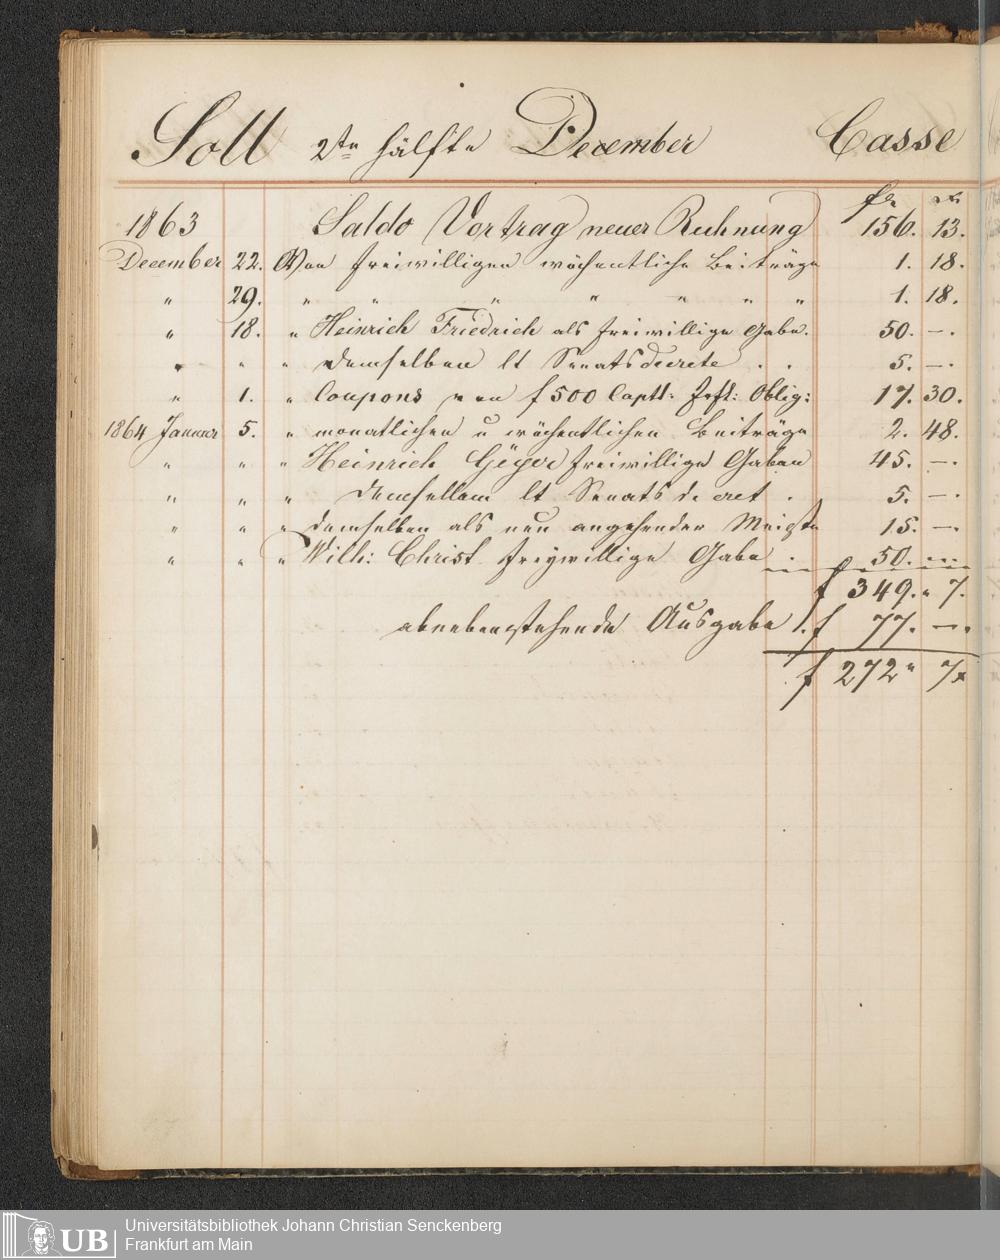 Soll 2te Hälfte December Casse
fl x
1863 Saldo Vortrag neuer Rechnung 156. 13.
December 22. Von freiwilligen wöchentliche Beiträge 1. 18.
" 29. " " " " " " " 1. 18.
" 18. " Heinrich Friedrich als freiwillige Gabe. 50. —.
" " " demselben lt Senatsdecrete . . 5. —.
" 1. " Coupons von f 500 Captl: Frkf: Oblig: 17. 30.
1864 Januar 5. " monatlichen u wöchentlichen Beiträge 2. 48.
" " " Heinrich Geyer freiwillige Gaben 45. —.
" " " demselben lt Senatsdecret . 5. —.
" " " demselben als neu angehender Meister 15. —.
" " " Wilh: Christ freywillige Gabe . 50. —
f 349. " 7.
abnebenstehende Ausgabe f 77. —.
f 272 " 7x
Universitätsbibliothek Johann Christian Senckenberg
Frankfurt am Main
UB